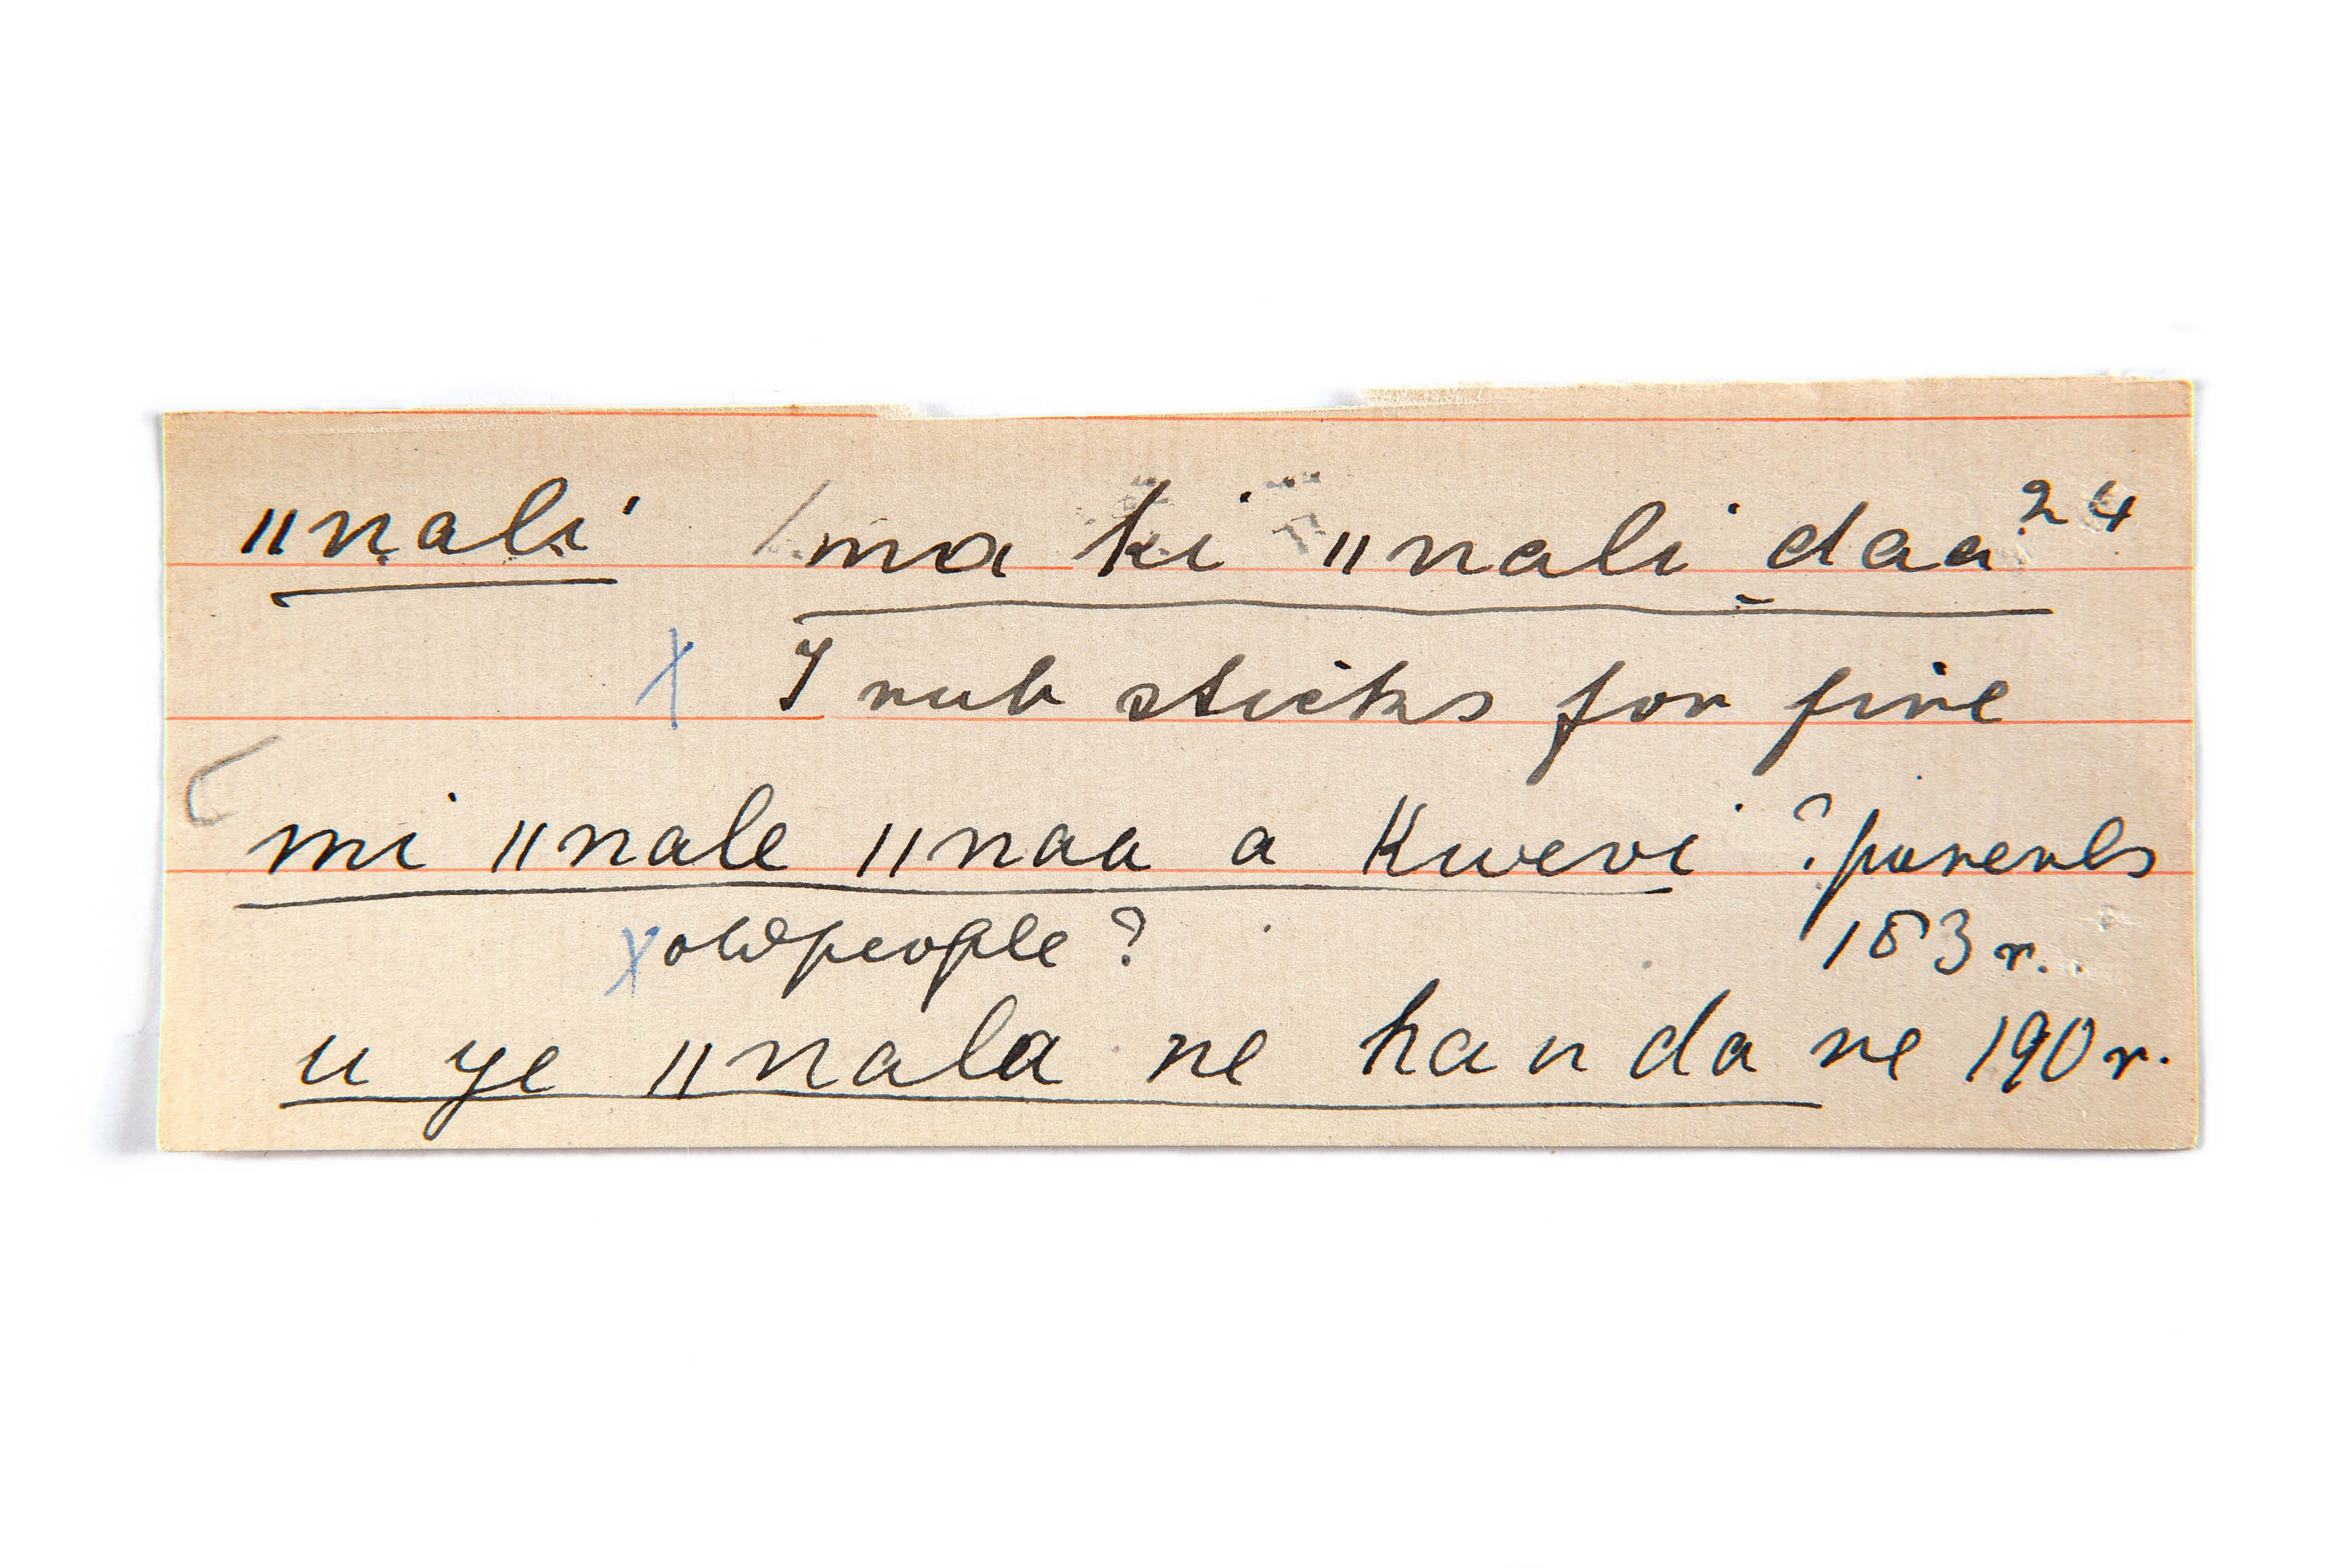 ǁnali ma ki ǁnali daa 24
X I rub sticks for fire
mi ǁnale ǁnaa a Kwevi ? parents
X old people ? 153 r.
u ye ǁnala ne handa ne 190 r.